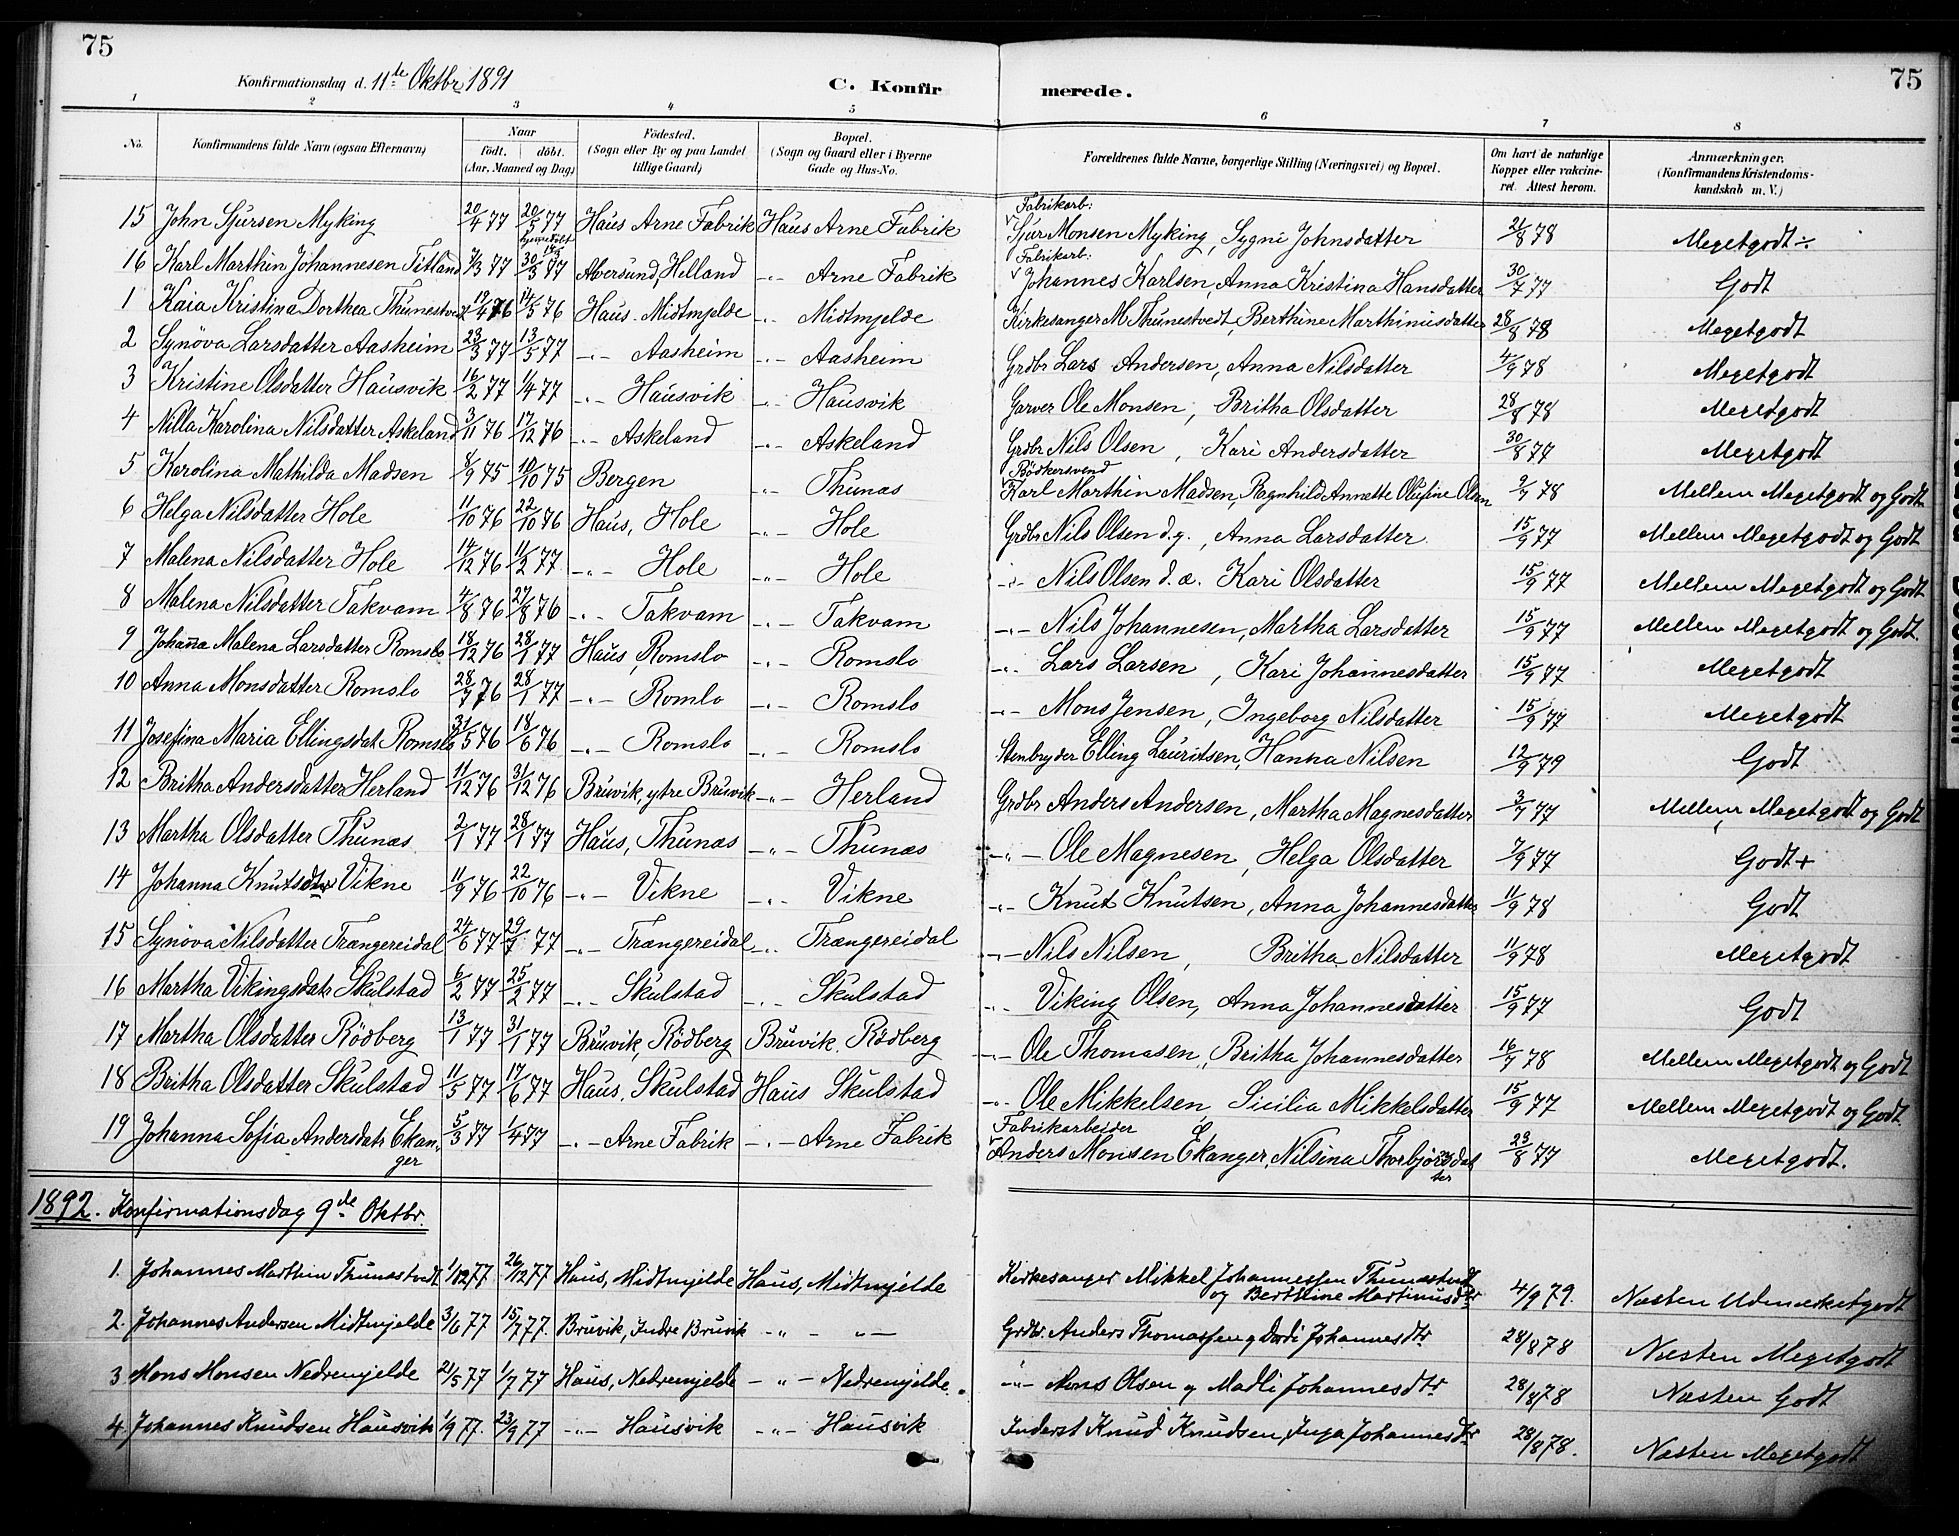 75
75
Konfirmationsdag d. 11te Oktbr 1891
C. Konfirmerede.
1 2 3 4 5 6 7 8
No. Konfirmandens fulde Navn (ogsaa Efternavn) Naar født. døbt. (Aar, Maaned og Dag) Födested. (Sogn eller By og paa Landet tillige Gaard) Bopæl. (Sogn og Gaard eller i Byerne Gade og Hus-No. Forældrenes fulde Navne, borgerlige Stilling (Næringsvei) og Bopæl. Om havt de naturlige Kopper eller vakcineret. Attest herom. Anmærkninger. (Konfirmandens Kristendomskundskab m. V.)
15 John Sjursen Myking 20/4 77 20/5 77 Haus Arne Fabrik Haus Arne Fabrik Fabrikarb: Sjur Monsen Myking, Sygni Johnsdatter 21/8 78 Megetgodt ÷
16 Karl Marthin Johannesen Titland 7/3 77 30/3 77 Alversund, Helland -"- Arne Fabrik Fabrikarb: Johannes Karlsen, Anna Kristina Hansdatter 30/7 77 Godt
1 Kaia Kristina Dorthea Thunestvedt 19/4 76 14/5 76 Haus. Midtmjelde -"- Midtmjelde Kirkesanger M. Thunestvedt, Berthine Marthinusdatter 28/8 78 Megetgodt
2 Synöva Larsdatter Aasheim 23/3 77 13/5 77 -"- Aasheim -"- Aasheim Grdbr Lars Andersen, Anna Nilsdatter 4/9 78 Megetgodt
3 Kristine Olsdatter Hausvik 16/2 77 1/4 77 -"- Hausvik -"- Hausvik Garver Ole Monsen, Britha Olsdatter 28/8 78 Megetgodt
4 Nilla Karolina Nilsdatter Askeland 3/11 76 17/12 76 -"- Askeland -"- Askeland Grdbr Nils Olsen, Kari Andersdatter 30/8 77 Megetgodt
5 Karolina Mathilda Madsen 8/9 75 10/10 75 Bergen -"- Thunæs Bödkersvend Karl Marthin Madsen, Ragnhild Annette Olufine Olsen 2/7 78 Mellem Megetgodt og Godt
6 Helga Nilsdatter Hole 11/10 76 22/10 76 Haus, Hole -"- Hole Grdbr Nils Olsen d.y., Anna Larsdatter 15/9 77 Mellem Megetgodt og Godt
7 Malena Nilsdatter Hole 14/12 76 11/2 77 -"- Hole -"- Hole -"- Nils Olsen d.æ. Kari Olsdatter 15/9 77 Mellem Megetgodt og Godt
8 Malena Nilsdatter Takvam 4/8 76 27/8 76 -"- Takvam -"- Takvam -"- Nils Johannesen, Martha Larsdatter 15/9 77 Mellem Megetgodt og Godt
9 Johanna Malena Larsdatter Romslo 18/12 76 28/1 77 Haus, Romslo -"- Romslo -"- Lars Larsen, Kari Johannesdatter 15/9 77 Megetgodt
10 Anna Monsdatter Romslo 28/7 76 28/1 77 -"- Romlo -"- Romslo -"- Mons Jensen, Ingeborg Nilsdatter 15/9 77 Megetgodt
11 Josefina Maria Ellingsdat. Romslo 31/5 76 18/6 76 -"- Romslo -"- Romslo Stenbryder Elling Lauritsen, Hanna Nilsen 12/9 79 Godt
12 Britha Andersdatter Herland 11/12 76 31/12 76 Bruvik, ytre Bruvik -"- Herland Grdbr Anders Andersen, Martha Magnesdatter 3/7 77 Mellem Megetgodt og Godt
13 Martha Olsdatter Thunæs 2/1 77 28/1 77 Haus, Thunæs -"- Thunæs -"- Ole Magnesen, Helga Olsdatter 7/9 77 Godt +
14 Johanna Knutsdtr Vikne 11/9 76 22/10 76 -"- Vikne -"- Vikne -"- Knut Knutsen, Anna Johannesdatter 11/9 78 Godt
15 Synöva Nilsdatter Trængereidal 24/6 77 29/7 77 -"- Trængereidal -"- Trængereidal -"- Nils Nilsen, Britha Nilsdatter 11/9 78 Megetgodt
16 Martha Vikingsdatr Skulstad 6/2 77 25/2 77 -"- Skulstad -"- Skulstad -"- Viking Olsen, Anna Johannesdatter 15/9 77 Godt
17 Martha Olsdatter Rödberg 13/1 77 31/1 77 Bruvik, Rödberg Bruvik. Rödberg -"- Ole Thomasen, Britha Johannesdatter 16/7 78 Mellem Megetgodt og Godt
18 Britha Olsdatter Skulstad 11/5 77 17/6 77 Haus, Skulstad Haus Skulstad -"- Ole Mikkelsen Sicilia Mikkelsdatter 15/9 77 Mellem Megetgodt og Godt
19 Johanna Sofia Andersdatr Ekanger 5/3 77 1/4 77 -"- Arne Fabrik -"- Arne Fabrik Fabrikarbeider Anders Monsen Ekanger, Nilsina Thorbjörnsdatter 23/8 77 Megetgodt.
1892. Konfirmationsdag 9de Oktbr.
1. Johannes Marthin Thunestvedt 1/12 77 26/12 77 Haus, Midtmjelde Haus, Midtmjelde Kirkesanger Mikkel Johannessen Thunestvedt og Berthine Martinusdtr 4/9 79. Næsten Udmærketgodt
2. Johannes Andersen Midtmjelde 3/6 77 15/7 77. Bruvik, Indre Bruvik -"- -"- Grdbr. Anders Thomassen og Dordi Johannesdtr 28/8 78 Næsten Megetgodt
3 Mons Monsen Nedremjelde 21/5 77 1/7 77 Haus, Nedremjelde -"- Nedremjelde. -"- Mons Olsen og Madli Johannesdtr 28/8 78 Næsten Godt
4. Johannes Knudsen Hausvik 1/9 77. 23/9 77 -"- Hausvik -"- Hausvik Inderst Knud Knudsen, Inga Johannesdtr 28/8 78. Næsten Megetgodt